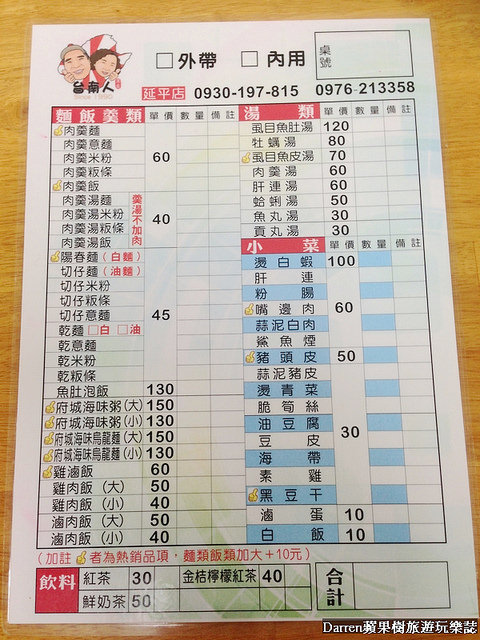 台南人
SINCE 1990
□外帶 □內用
桌號
延平店 0930-197-815 0976-213358
麵飯羹類 單價 數量 備註
肉羹麵
肉羹意麵
肉羹米粉 60
肉羹粄條
肉羹飯
肉羹湯麵
肉羹湯米粉 40
肉羹湯粄條
肉羹湯飯
羹湯不加肉
陽春麵(白麵)
切仔麵(油麵)
切仔米粉
切仔粄條
切仔意麵 45
乾麵□白 □油
乾意麵
乾米粉
乾粄條
魚肚泡飯 130
府城海味粥(大) 150
府城海味粥(小) 130
府城海味烏龍麵(大) 150
府城海味烏龍麵(小) 130
雞滷飯 60
雞肉飯(大) 50
雞肉飯(小) 40
滷肉飯(大) 50
滷肉飯(小) 40
湯類 單價 數量 備註
虱目魚肚湯 120
牡蠣湯 80
虱目魚皮湯 70
肉羹湯 60
肝連湯 60
蛤蜊湯 50
魚丸湯 30
貢丸湯 30
小菜 單價 數量 備註
燙白蝦 100
肝連
粉腸
嘴邊肉 60
蒜泥白肉
鯊魚煙
豬頭皮 50
蒜泥豬皮
燙青菜
脆筍絲
油豆腐
豆皮 30
海帶
素雞
黑豆干
滷蛋 10
白飯 10
(加註 者為熱銷品項,麵類飯類加大+10元)
飲料 紅茶 30 金桔檸檬紅茶 40
鮮奶茶 50
合計
Darren蘋果樹旅遊玩樂誌